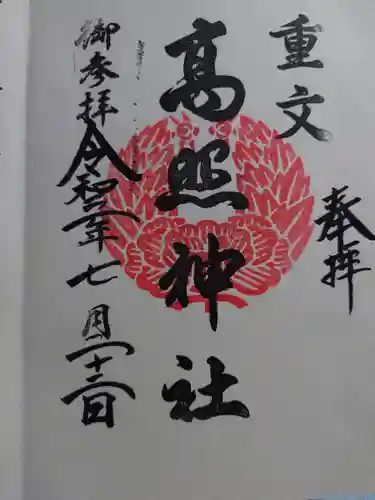 重文
奉拝
高照神社
御参拝
令和二年七月二十二日